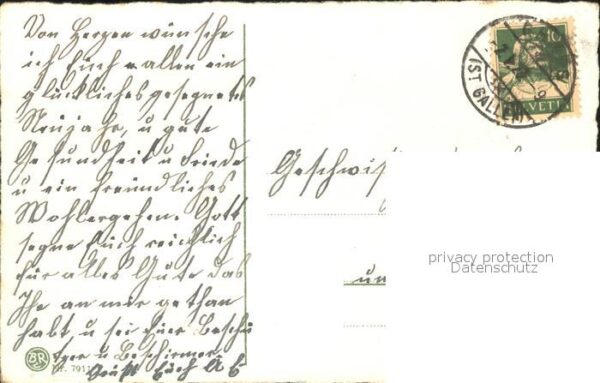 Von Herzen wünsche
ich Euch allen ein
glückliches gesegnetes
Neujahr, u gute
Gesundheit u Friede
u ein freundliches
Wohlergehen. Gott
segne Euch reichlich
für alles Gute das
Ihr an mir gethan
habt u sei Euer Beschü
tzer u Beschirmer
Grüßt Euch A
BR
Nr. 791
10
(ST. GALLEN)
HELVETI
Geschwis
un
privacy protection
Datenschutz